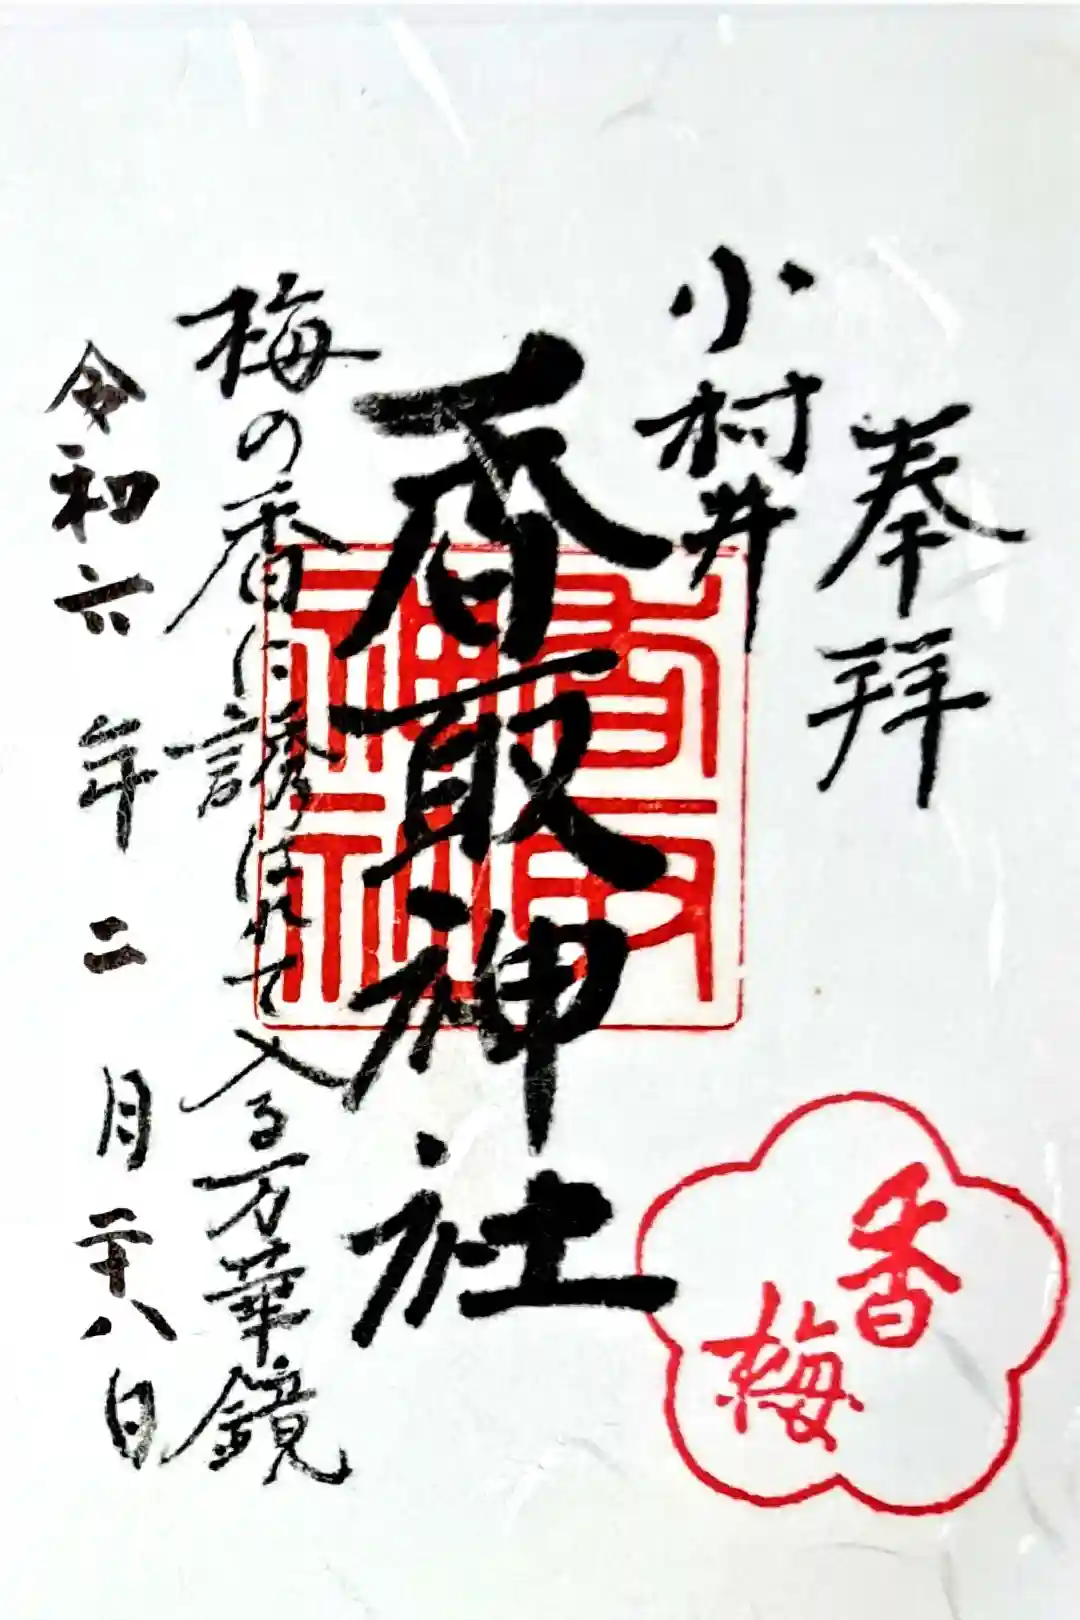 奉拝
小村井
香取神社
梅の香に誘はれて入る万華鏡
令和六年二月二十八日
香取神社
香梅